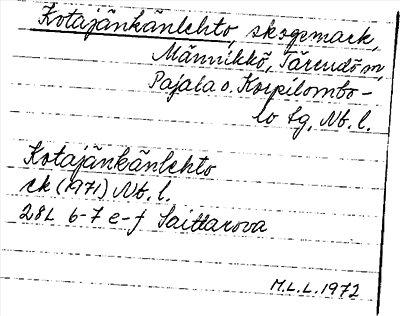 Kotajänkänlehto, skogsmark,
Männikkö, Tärendö m,
Pajala o. Korpilombo-
lo tg, Nb. l.
Kotajänkänlehto
ek (1971) Nb. l.
28L 6-7 e-f Saittarova
M.L.L. 1972